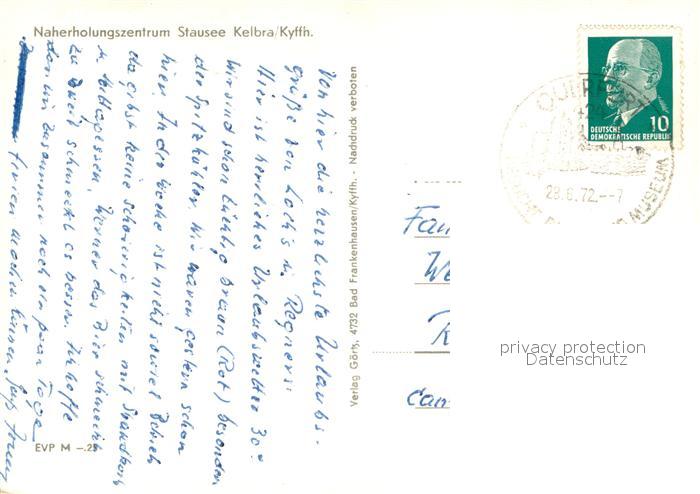 Naherholungszentrum Stausee Kelbra/Kyffh.
Von hier die herzlichste Urlaubs-
grüße von Loch's u. Regners.
Hier ist herrliches Urlaubswetter 30°
wir sind schon tüchtig braun (Rot) besonders
der Spitzkühler. Wir waren gestern schon
hier. In der Woche ist nicht soviel Betrieb
da gibst keine schwierigkeiten mit
u. Mittagessen, das Bier schmeckt
zu zweit schmeckt es besser. Ich hoffe
das wir zusammen noch ein paar Tage
Ferien machen können.
Verlag Görtz, 4732 Bad Frankenhausen/Kyffh. - Nachdruck verboten
EVP M -.25
DEUTSCHE
DEMOKRATISCHE REPUBLIK
10
QUERFURT
28.6.72.--7
MUSEUM
Fam
We
K
Cam
privacy protection
Datenschutz